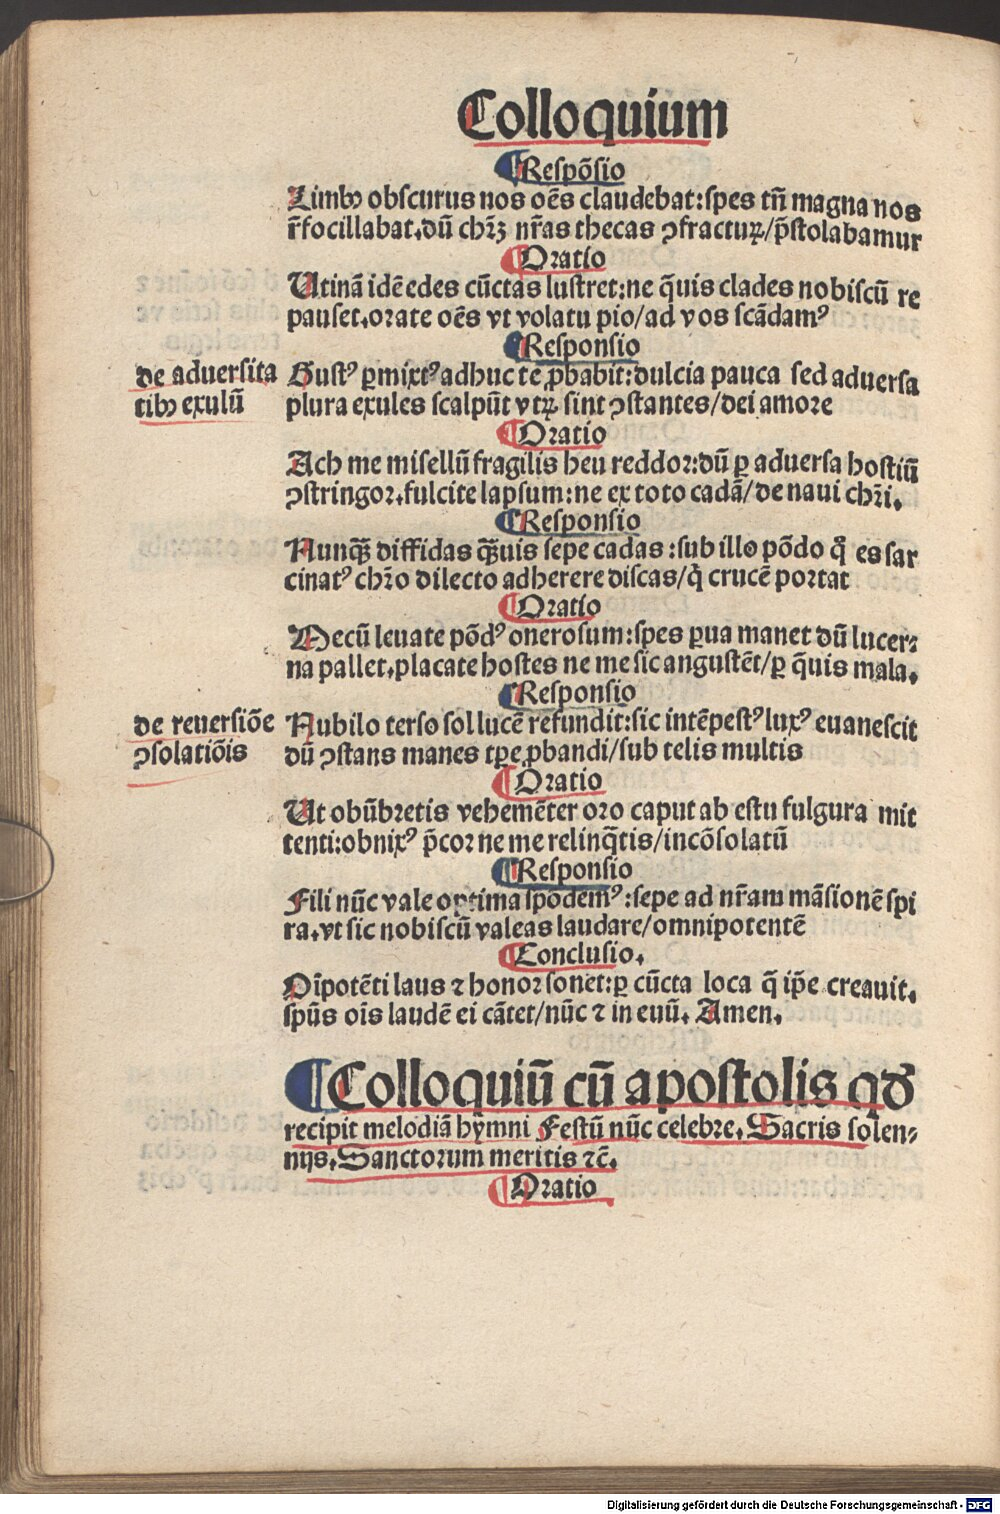 Colloquium
Respõsio
Limbꝰ obscurus nos oēs claudebat:spes tñ magna nos
r̃focillabat.dũ chr̃ꝫ nr̃as thecas ꝯfracturꝰ/p̃stolabamur
Oratio
Utinã idē edes cũctas lustret:ne q̃uis clades nobiscũ re
pauset.orate oēs vt volatu pio/ad vos scãdamꝰ
Responsio
de aduersita
tibꝰ exulũ
Gustꝰ ꝑmixtꝰ adhuc te ꝓbabit:dulcia pauca sed aduersa
plura exules scalpũt vtꝝ sint ꝯstantes/dei amore
Oratio
Ach me misellũ fragilis heu reddor:dũ ꝑ aduersa hostiũ
ꝯstringor.fulcite lapsum:ne ex toto cadã/de naui chr̃i.
Responsio
Nunq̃ȝ diffidas q̃ȝuis sepe cadas :sub illo põdo q̃ es sar
cinatꝰ chr̃o dilecto adherere discas/q̇ crucē portat
Oratio
Mecũ leuate põdꝰ onerosum:spes ꝑua manet dũ lucer⸗
na pallet.placate hostes ne me sic angustēt/ꝑ q̃uis mala.
Responsio
de reuersiõe
ꝯsolatiõis
Nubilo terso sol lucē refundit:sic intēpestꝰ luxꝰ euanescit
dũ ꝯstans manes tꝑe ꝓbandi/sub telis multis
Oratio
Ut obũbretis vehemēter oro caput ab estu fulgura mit
tenti:obnixꝰ p̃cor ne me relinq̃tis/incõsolatũ
Responsio
Fili nũc vale optima spõdemꝰ:sepe ad nr̃am mãsionē spi
ra.vt sic nobiscũ valeas laudare/omnipotentē
Conclusio.
Oĩpotēti laus ⁊ honor sonet:ꝑ cũcta loca q̃ ip̃e creauit.
sp̃us oĩs laudē ei cãtet/nũc ⁊ in euũ. Amen.
Colloquiũ cũ apostolis qd
recipit melodiã hymni Festũ nũc celebre. Sacris solen⸗
nijs. Sanctorum meritis ⁊c̃.
Oratio
Digitalisierung gefördert durch die Deutsche Forschungsgemeinschaft - DFG